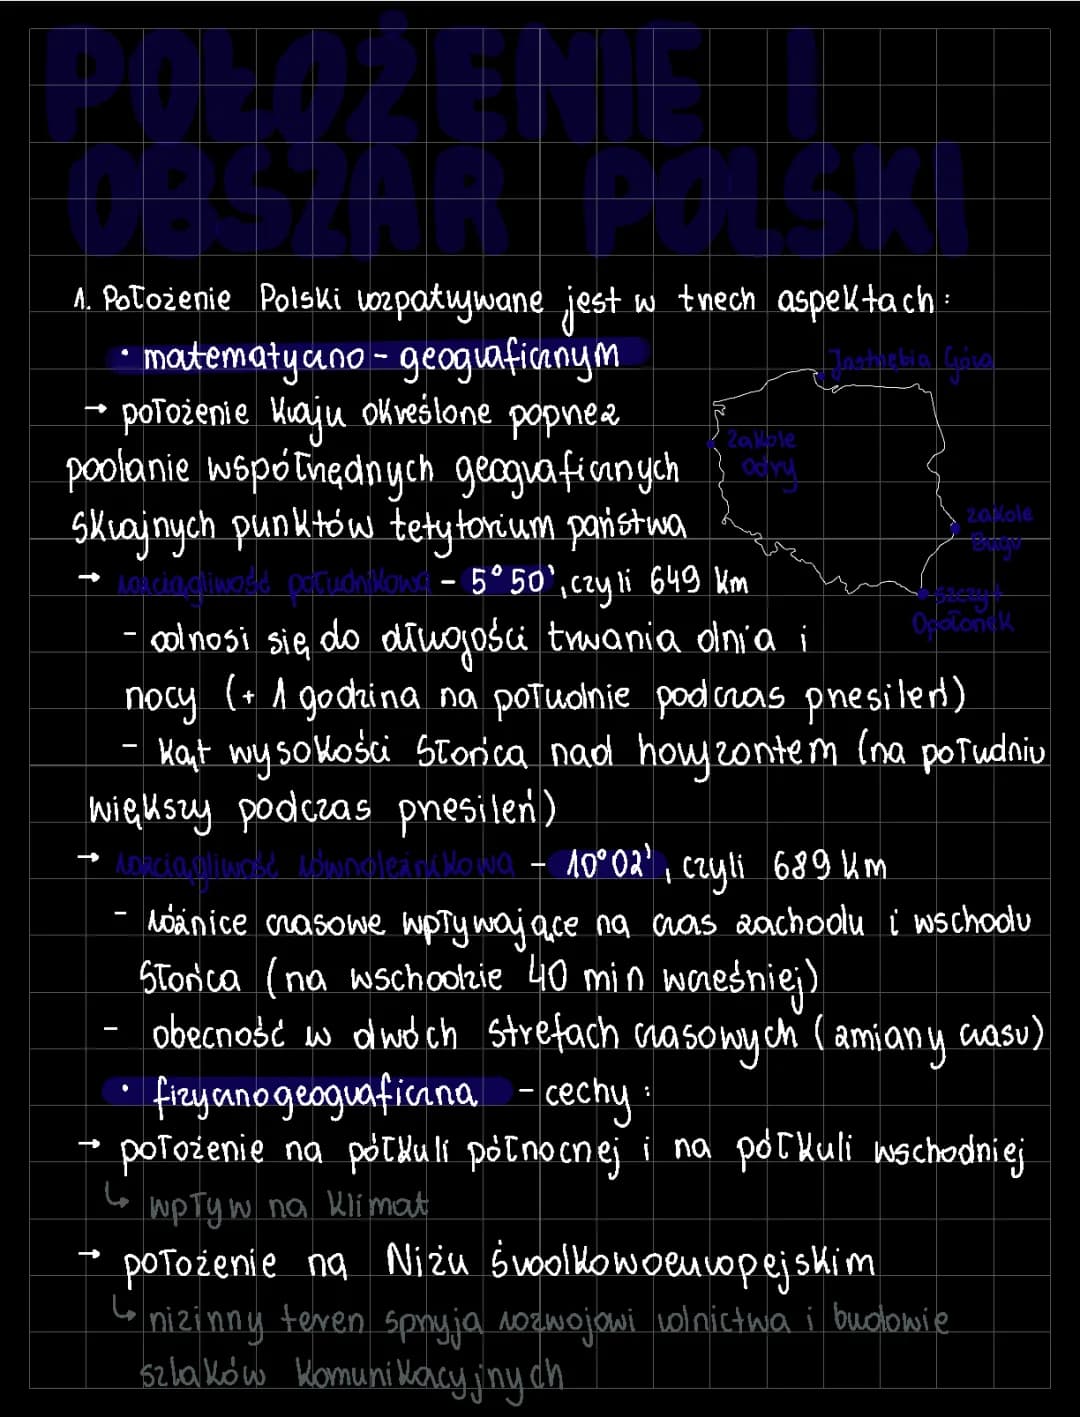 POŁOŻENIE I
OBSZAR POLSKI
1. Położenie Polski rozpatrywane jest w trzech aspektach:
• matematyczno-geograficznym
→ położenie kraju określone poprzez
podanie współrzędnych geograficznych
skrajnych punktów tetytorium państwa
→ rozciągliwość południkowa - 5°50', czyli 649 km
- odnosi się do długości trwania dnia i
nocy (+ 1 godzina na południe podczas przesileń)
- kąt wysokości Słońca nad horyzontem (na południu
większy podczas przesileń)
→ rozciągliwość równoleżnikowa - 10°02', czyli 689 km
- różnice czasowe wpływające na czas zachodu i wschodu
Słońca (na wschodzie 40 min wcześniej)
- obecność w dwóch strefach czasowych (zmiany czasu)
• fizycznogeograficzna - cechy:
→ położenie na półkuli północnej i na półkuli wschodniej
↳ wpływ na klimat
→ położenie na Niżu środkowoeuropejskim
↳ nizinny teren sprzyja rozwojowi rolnictwa i budowie
szlaków komunikacyjnych
Jastrzębia Góra
Zakole
Odry
zakole
Bugu
szczyt
Opołonek